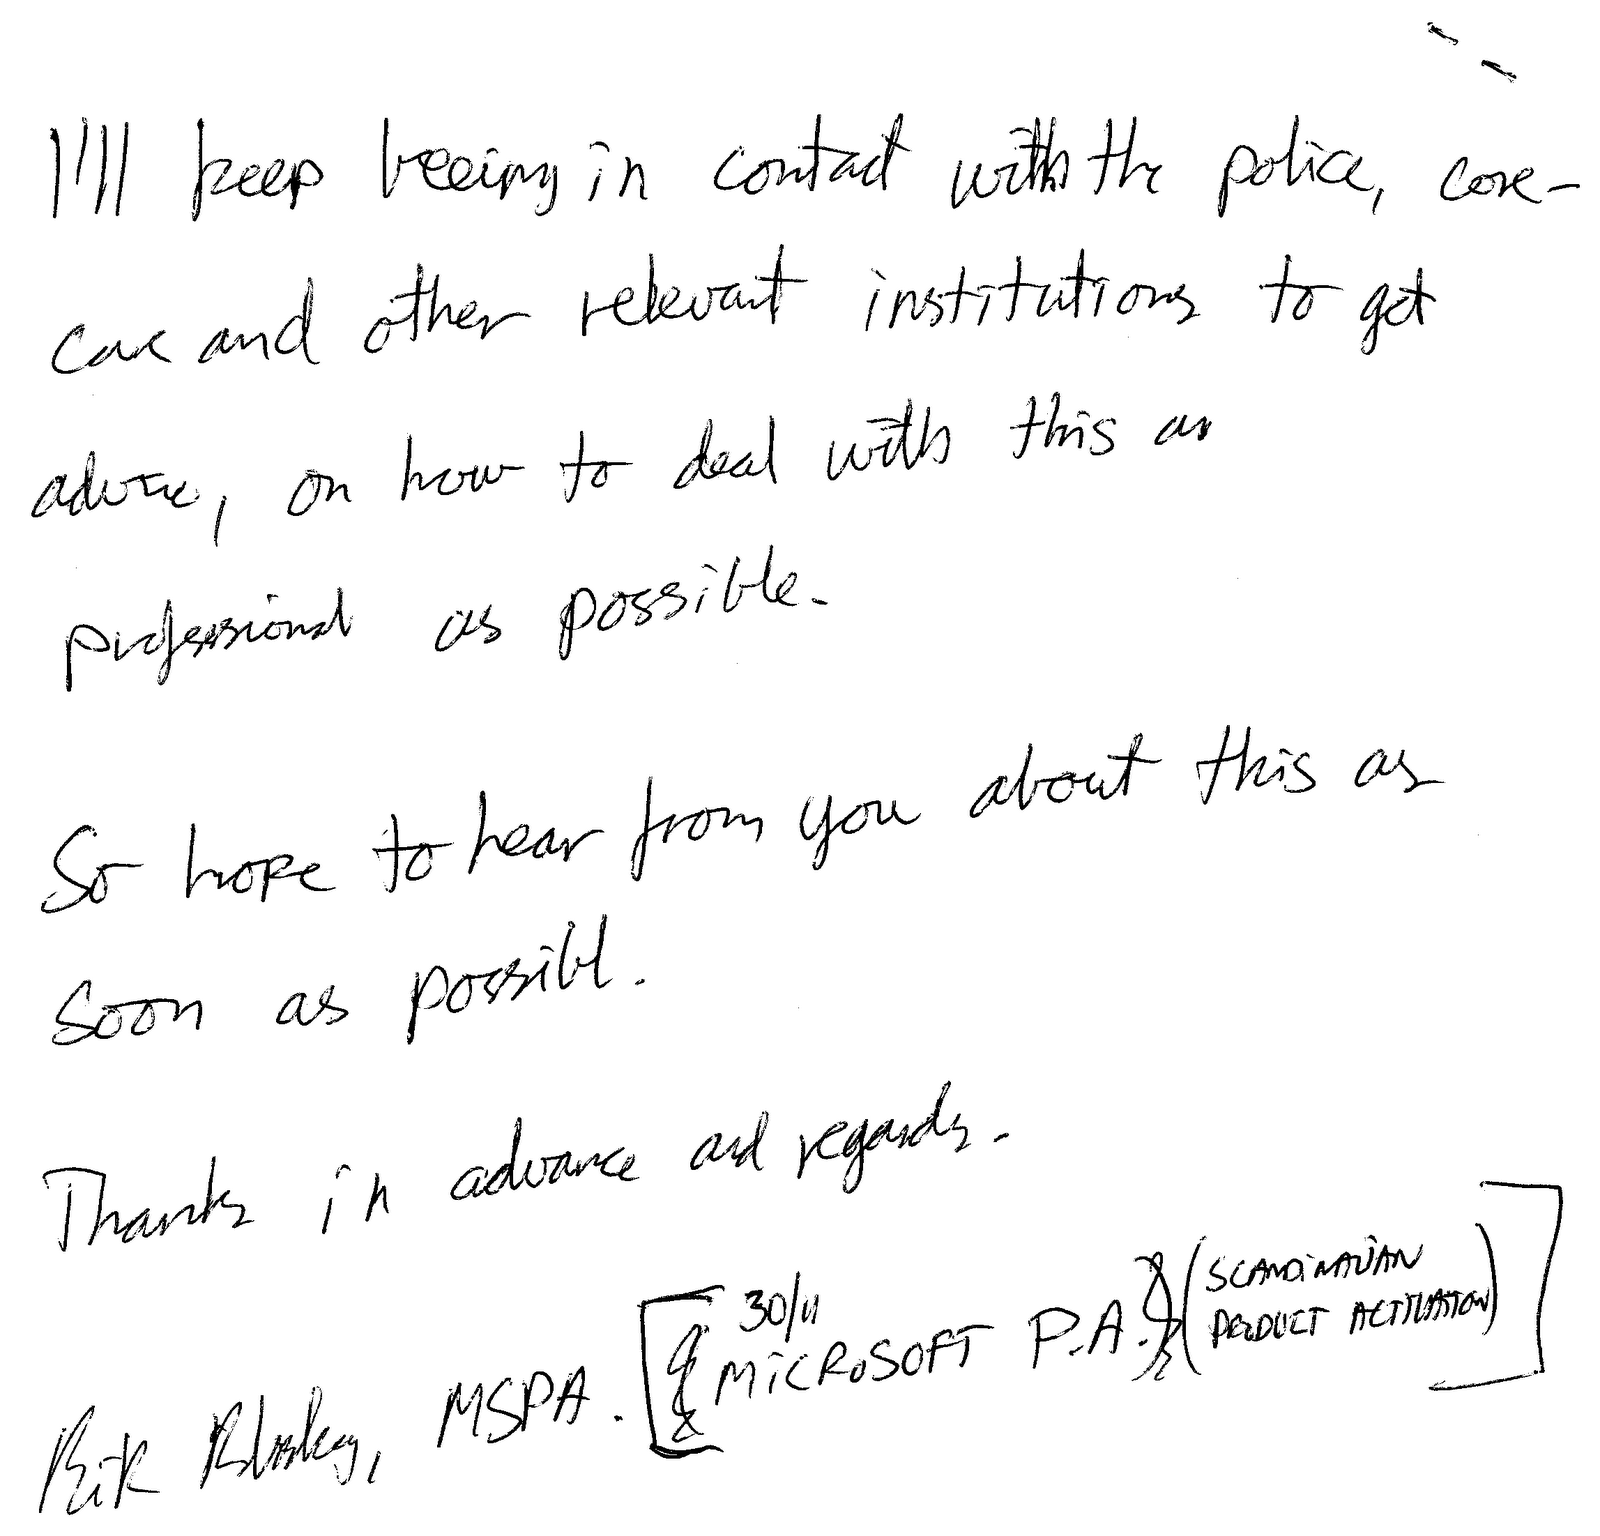 I'll keep beeing in contact with the police, core-
care and other relevant institutions to get
advice, on how to deal with this as
professional as possible.
So hope to hear from you about this as
soon as possibl.
Thanks in advance and regards.
30/11
MSPA. [{MICROSOFT P.A.} (SCANDINAVIAN
PRODUCT ACTIVATION)]